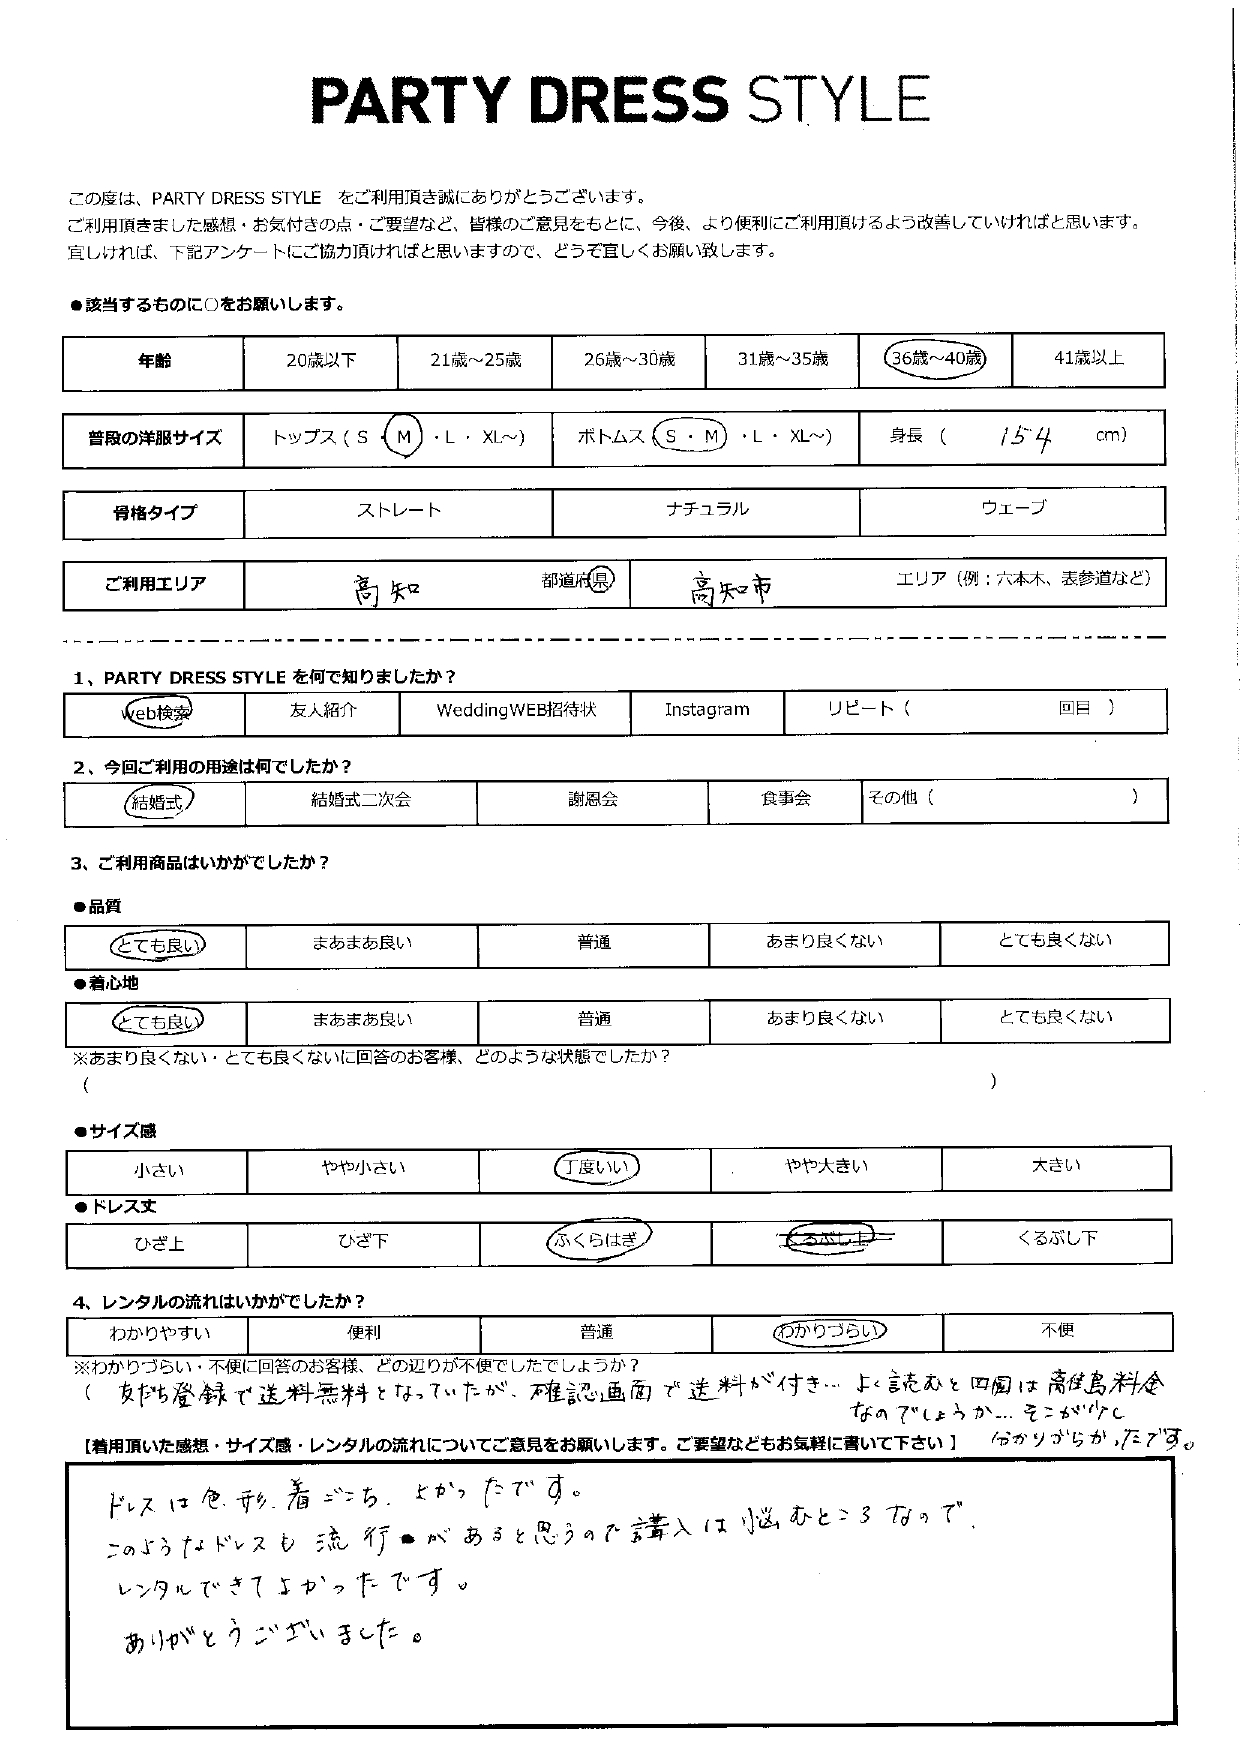 PARTY DRESS STYLE
この度は、PARTY DRESS STYLE をご利用頂き誠にありがとうございます。
ご利用頂きました感想・お気付きの点・ご要望など、皆様のご意見をもとに、今後、より便利にご利用頂けるよう改善していければと思います。
宜しければ、下記アンケートにご協力頂ければと思いますので、どうぞ宜しくお願い致します。
●該当するものに○をお願いします。
年齢 20歳以下 21歳～25歳 26歳～30歳 31歳～35歳 36歳～40歳 41歳以上
普段の洋服サイズ トップス ( S ・ M ・L ・ XL～) ボトムス ( S ・ M ・L ・ XL～) 身長 ( 154 cm)
骨格タイプ ストレート ナチュラル ウェーブ
ご利用エリア 高知 都道府県 高知市 エリア（例：六本木、表参道など）
1、PARTY DRESS STYLE を何で知りましたか？
web検索 友人紹介 WeddingWEB招待状 Instagram リピート（ 回目 ）
2、今回ご利用の用途は何でしたか？
結婚式 結婚式二次会 謝恩会 食事会 その他（ ）
3、ご利用商品はいかがでしたか？
●品質
とても良い まあまあ良い 普通 あまり良くない とても良くない
●着心地
とても良い まあまあ良い 普通 あまり良くない とても良くない
※あまり良くない・とても良くないに回答のお客様、どのような状態でしたか？
( )
●サイズ感
小さい やや小さい 丁度いい やや大きい 大きい
●ドレス丈
ひざ上 ひざ下 ふくらはぎ くるぶし上 くるぶし下
4、レンタルの流れはいかがでしたか？
わかりやすい 便利 普通 わかりづらい 不便
※わかりづらい・不便に回答のお客様、どの辺りが不便でしたでしょうか？
( 友だち登録で送料無料となっていたが、確認画面で送料が付き… よく読むと四国は離島料金
なのでしょうか… そこが少し
分かりづらかったです。
【着用頂いた感想・サイズ感・レンタルの流れについてご意見をお願いします。ご要望などもお気軽に書いて下さい 】
ドレスは色、形、着ごこち、よかったです。
このようなドレスも流行があると思うので購入は悩むところなので、
レンタルできてよかったです。
ありがとうございました。